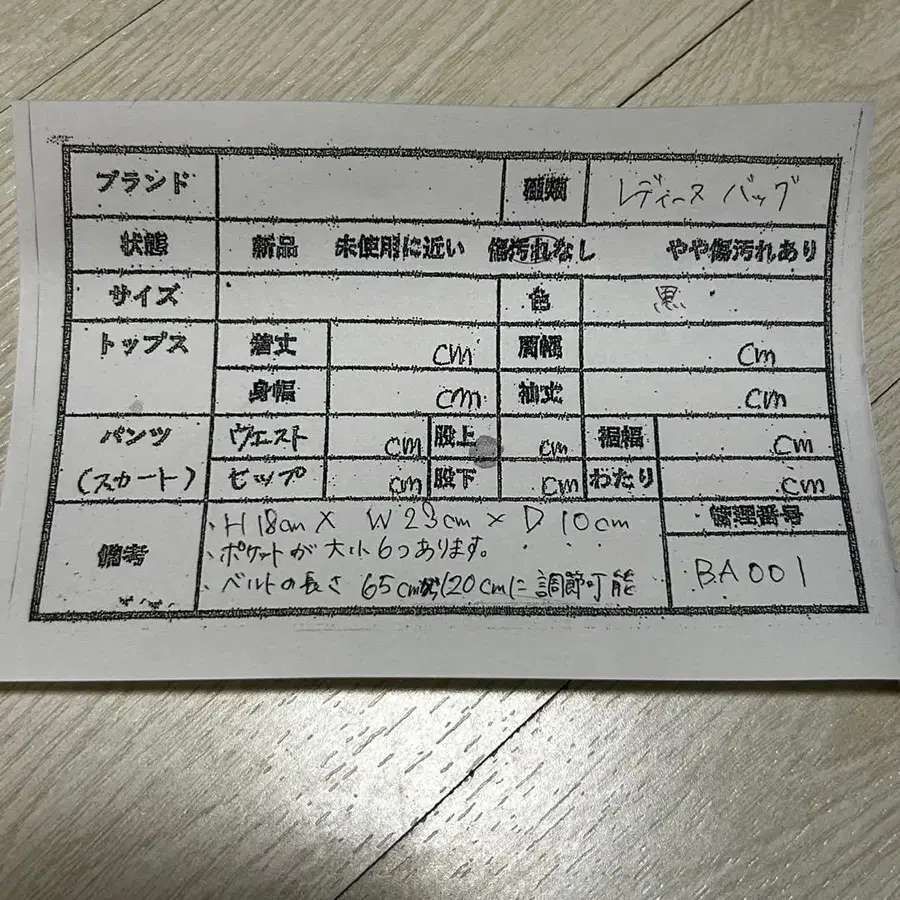 ブランド 種類 レディース バッグ
状態 新品 未使用に近い 傷汚れなし やや傷汚れあり
サイズ 色 黒
トップス 着丈 cm 肩幅 cm
身幅 cm 袖丈 cm
パンツ ウエスト cm 股上 cm 裾幅 cm
(スカート) ヒップ cm 股下 cm わたり cm
備考 管理番号
・H 18cm × W 23cm × D 10cm
・ポケットが大小6つあります。
・ベルトの長さ 65cmから120cmに調節可能
BA001